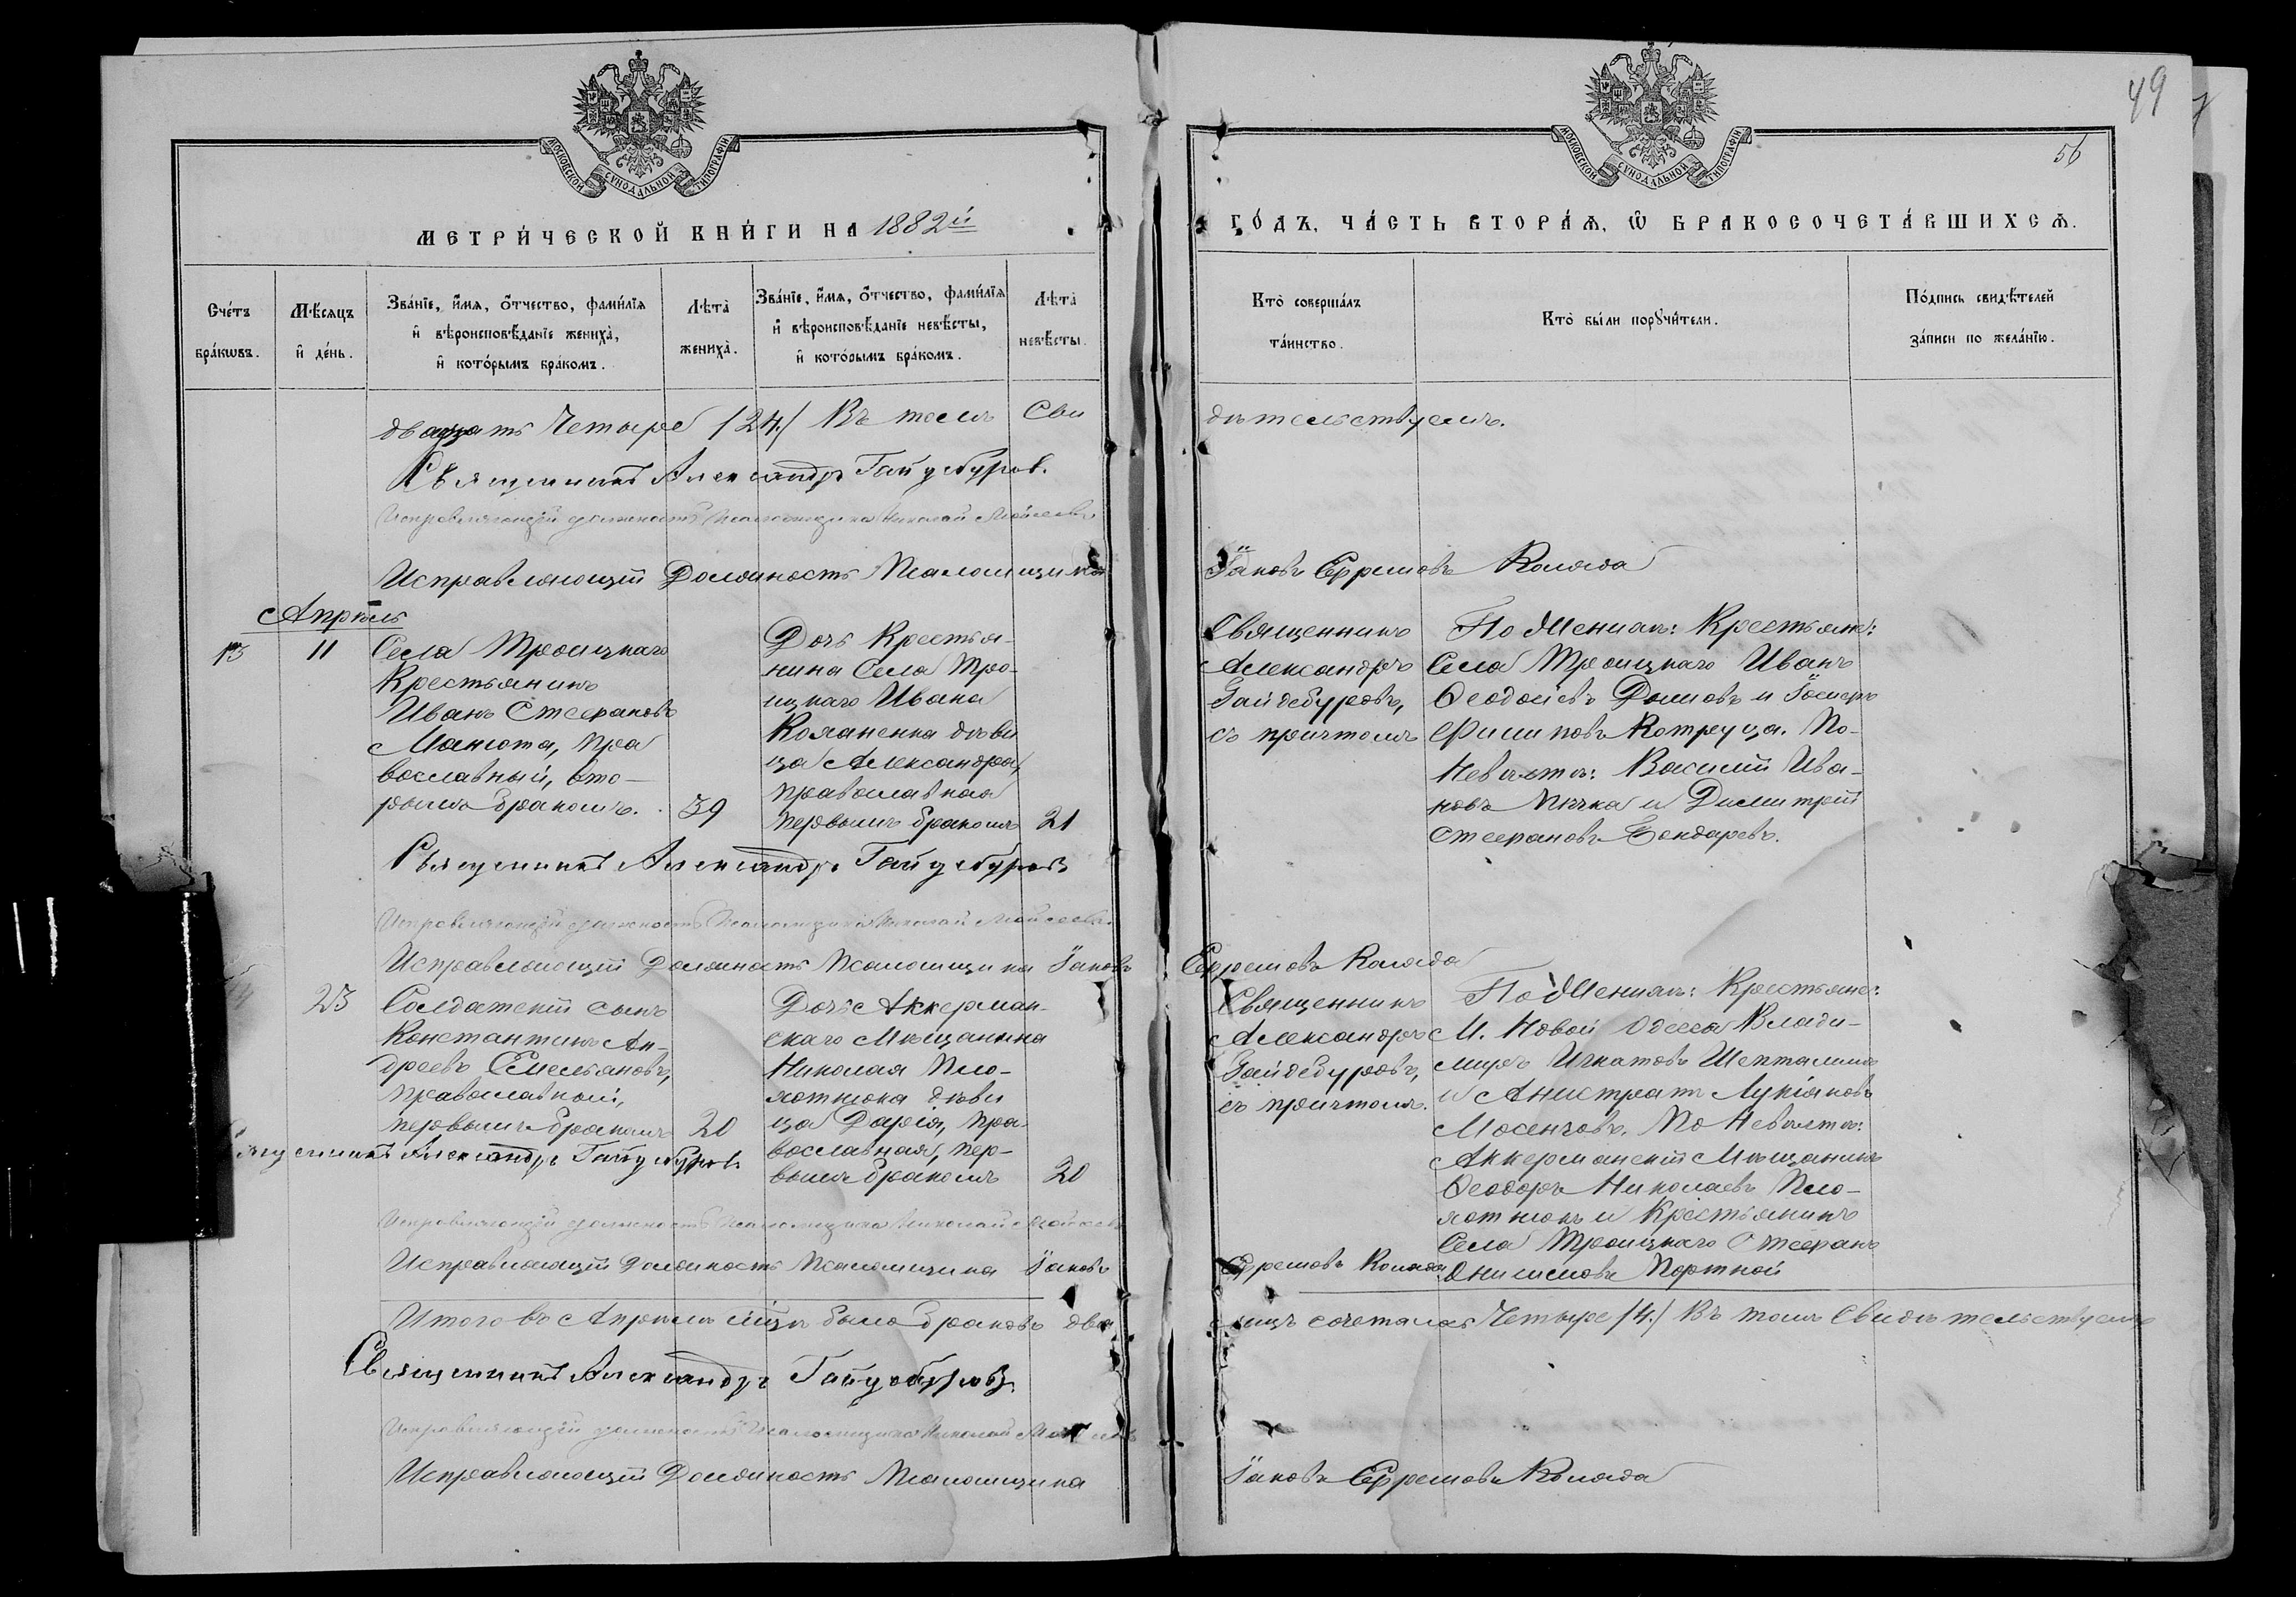 49
56
МОСКОВСКОЙ СУНОДАЛЬНОЙ ТИПОГРАФІИ
МОСКОВСКОЙ СУНОДАЛЬНОЙ ТИПОГРАФІИ
МЕТРИ́ЧЕСКОЙ КНИ́ГИ НА 1882й
ГО́ДЪ, ЧА́СТЬ ВТОРА́Я, Ѡ БРАКОСОЧЕТА́ВШИХСЯ.
Сче́тъ
бра́кωвъ.
Мѣ́сяцъ
и҆ де́нь.
Зва́нїе, и҆́мя, ѻ҆́тчество, фами́лїя
и҆ вѣроисповѣ́данїе жениха̀,
и҆ кото́рымъ бра́комъ.
Лѣта̀
жениха̀.
Зва́нїе, и҆́мя, ѻ҆́тчество, фами́лїя
и҆ вѣроисповѣ́данїе невѣ́сты,
и҆ кото́рымъ бра́комъ.
Лѣта̀
невѣ́сты.
Кто̀ соверша́лъ
та́инство.
Кто̀ бы́ли порꙋчи́тели.
По́дпись свидѣ́телей
за́писи по жела́нїю.
двадцать Четыре /24./ Въ темъ Сви
дѣтельствуемъ.
Священникъ Александръ Гайдебуров.
Исправляющій должность Псаломщика Николай Мойсеевъ
Исправляющій Должность Псаломщика
Іаковъ Ефремовъ Коляда
Апрѣль
13
11
Села Троицкаго
Крестьянинъ
Иванъ Стефановъ
Манюта, пра
вославный, вто-
рымъ бракомъ.
39
Дочь Крестья-
нина Села Тро-
ицкаго Ивана
Коланенка дѣви
ца Александра,
православная
первымъ бракомъ
21
Священникъ
Александръ
Гайдебуровъ,
съ причтомъ
По Женихѣ: Крестьяне:
Села Троицкаго Иванъ
Ѳеодосіевъ Домовъ и Іосифъ
Филиповъ Котруца. По-
Невѣстѣ: Василій Ива-
новъ Пѣчка и Димитрій
Стефановъ Бондаревъ.
Священникъ Александръ Гайдебуровъ
Исправляющій должность Псаломщика Николай Мойсеевъ
Исправляющій Должность Псаломщика Іаковъ
Ефремовъ Коляда
14
23
Солдатскій сынъ
Константинъ Ан-
дреевъ Емельяновъ,
православной,
первымъ бракомъ
20
Дочь Аккерман-
скаго Мѣщанина
Николая Пло-
хотнюка дѣви
ца Дарія, пра-
вославная, пер-
вымъ бракомъ
20
Священникъ
Александръ
Гайдебуровъ,
съ причтомъ.
По Женихѣ: Крестьяне:
М. Новой Одесса Влади-
миръ Игнатовъ Шепталинъ
и Анистратъ Лукіановъ
Мосенговъ. По Невѣстѣ:
Аккерманскій Мѣщанинъ
Ѳеодоръ Николаевъ Пло-
хотнюкъ и Крестьянинъ
Села Троицкаго Стефанъ
Онисимовъ Портной
Священникъ Александръ Гайдебуровъ
Исправляющій должность Псаломщика Николай Мойсеевъ
Исправляющій Должность Псаломщика Іаковъ
Ефремовъ Коляда
Итого въ Апрѣлѣ мцѣ было браковъ два
лицъ сочеталось Четыре /4./ Въ томъ Свидѣтельствуемъ
Священникъ Александръ Гайдебуровъ
Исправляющій должность Псаломщика Николай Мойсеевъ
Исправляющій Должность Псаломщика
Іаковъ Ефремовъ Коляда